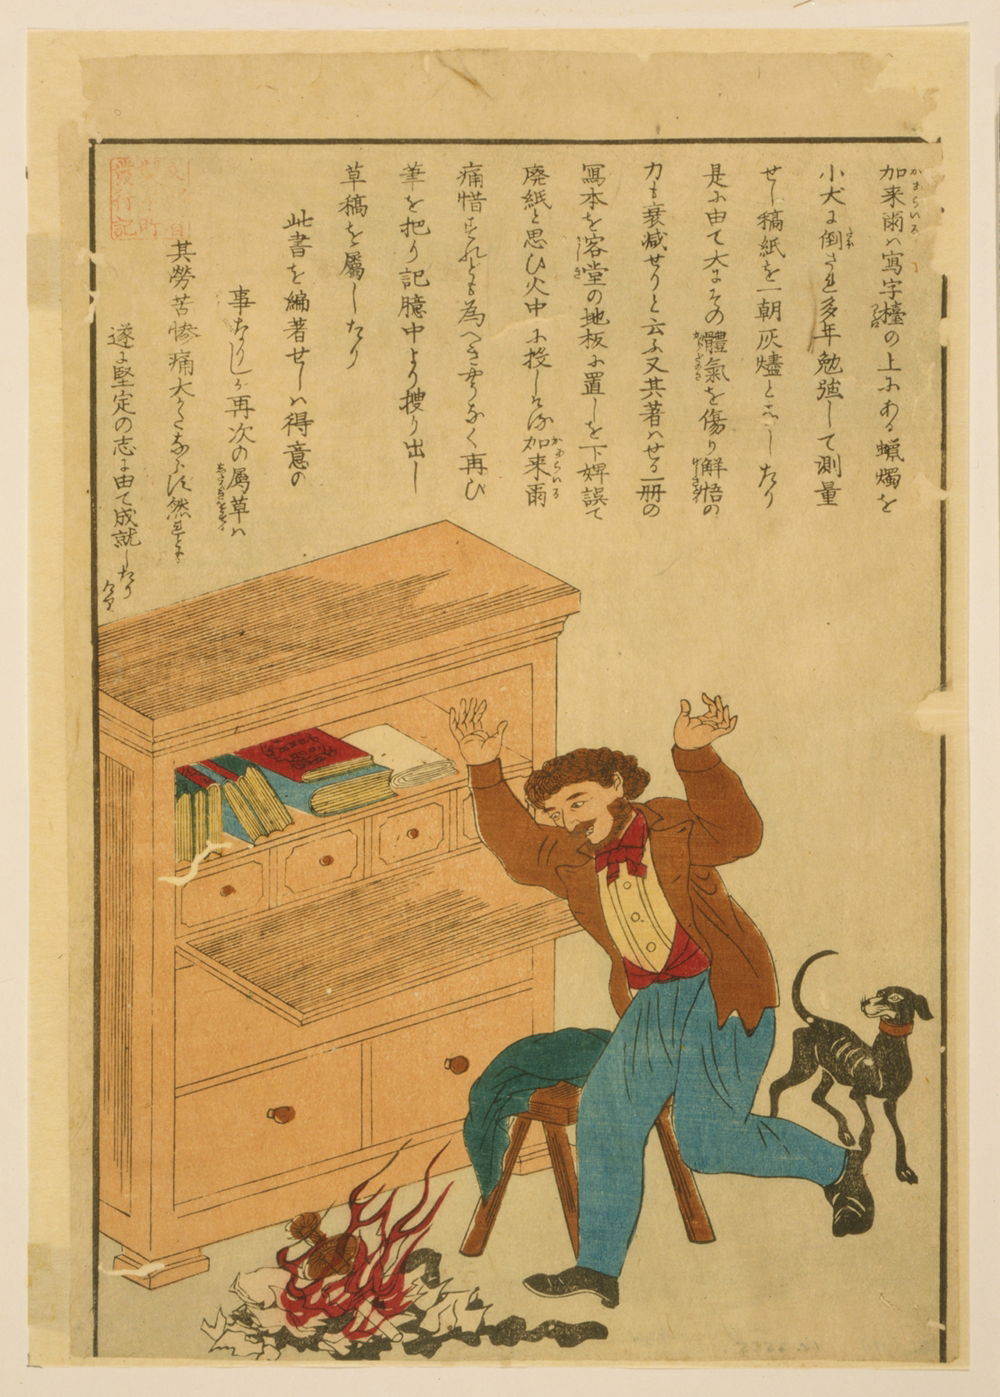 加来雨ハ寫字檯の上にある蝋燭を
小犬に倒され多年勉強して測量
せし稿紙を一朝灰燼となしたり
是に由て大にその體氣を傷り解悟の
力も衰減せりと云ふ又其著ハせる一冊の
寫本を客堂の地板に置しを下婢誤て
廃紙と思ひ火中に投しける加来雨
痛惜すれども為へき無く再び
筆を把り記臆中より捜り出し
草稿を屬したり
此書を編著せしハ得意の
事なりしが再次の屬草ハ
其勞苦惨痛大かたならず然れども
遂に堅定の志に由て成就したり